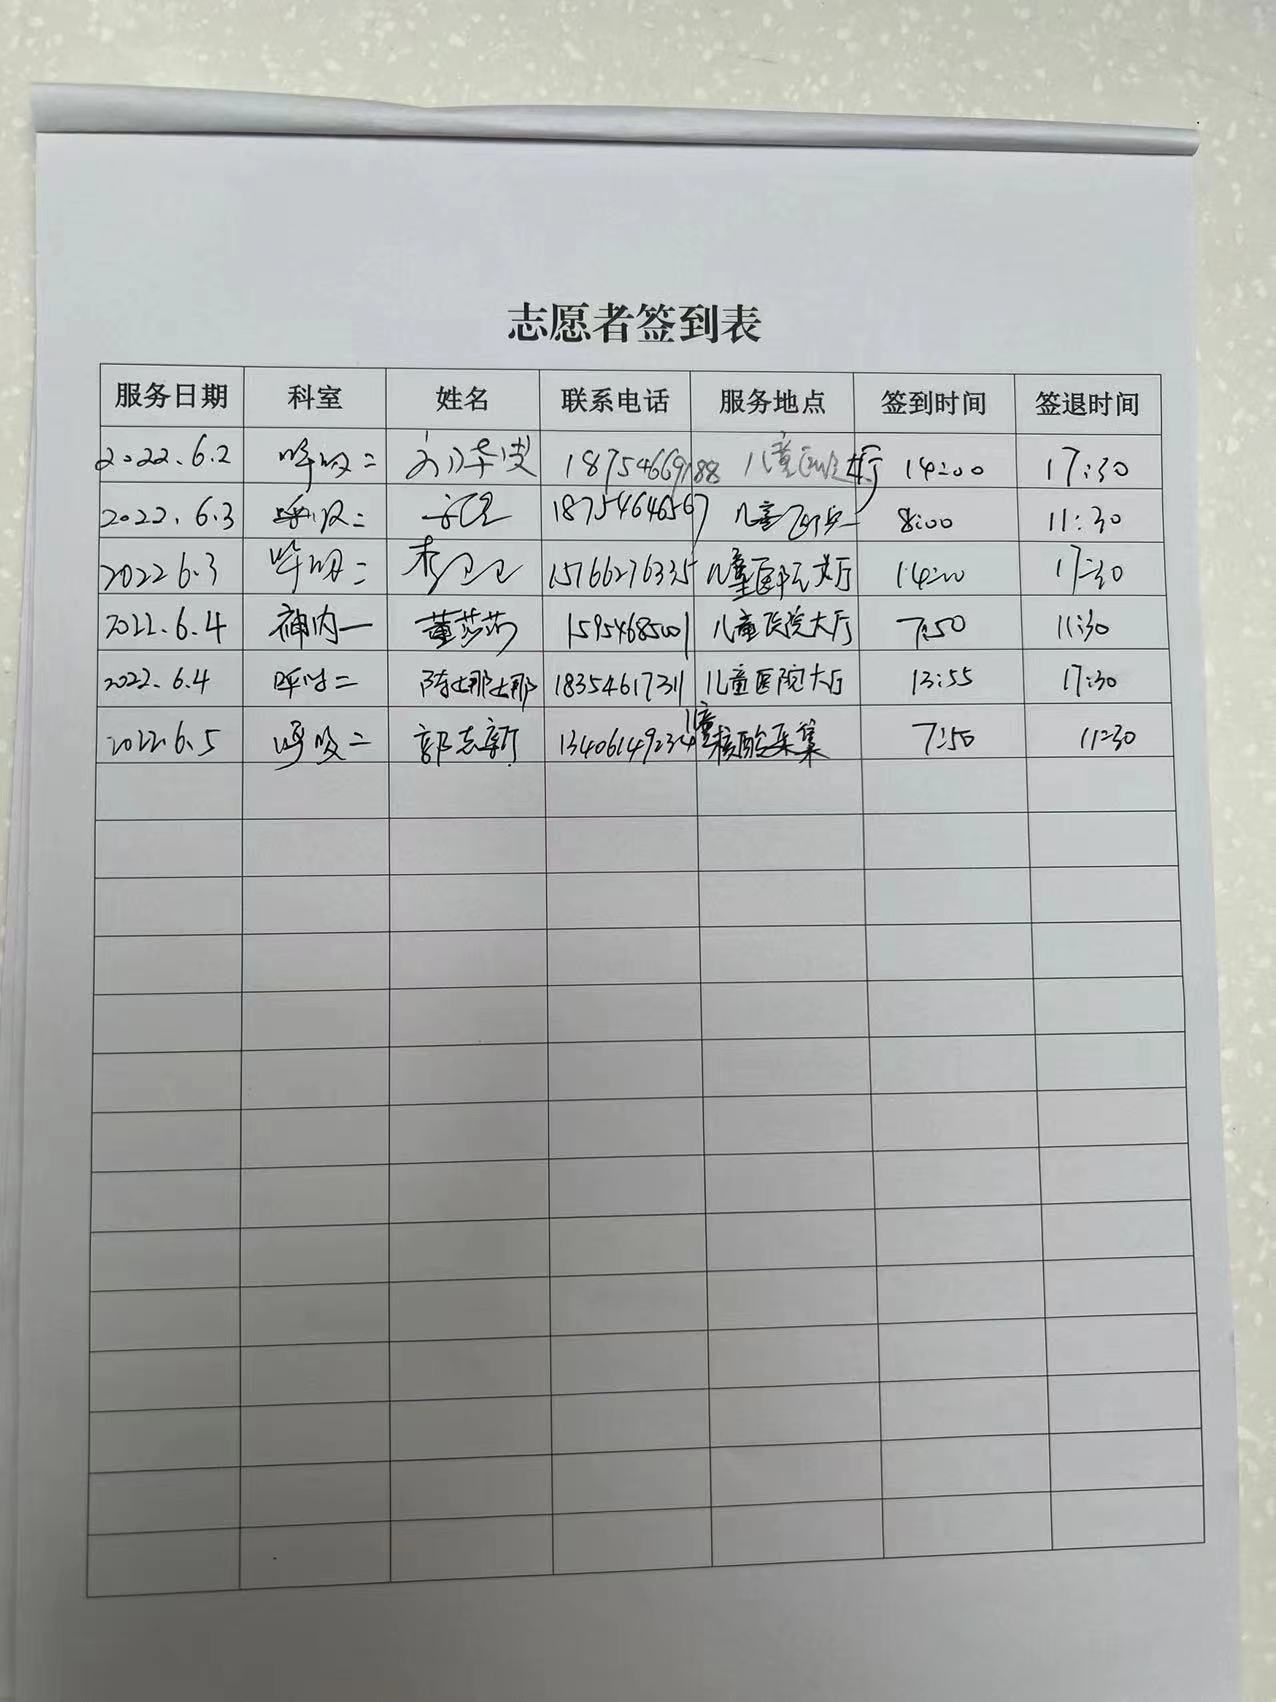 志愿者签到表
服务日期 科室 姓名 联系电话 服务地点 签到时间 签退时间
2022.6.2 呼吸二 18754669188 儿童医院大厅 14:00 17:30
2022.6.3 呼吸二 18754646567 儿童医院 8:00 11:30
2022 6.3 呼吸二 李卫卫 15766276335 儿童医院大厅 14:00 17:30
2022.6.4 神内一 董莎莎 15954685001 儿童医院大厅 7:50 11:30
2022.6.4 呼吸二 陈娜娜 18354617311 儿童医院大厅 13:55 17:30
2022.6.5 呼吸二 郭志新 13406149234 儿童核酸采集 7:50 11:30